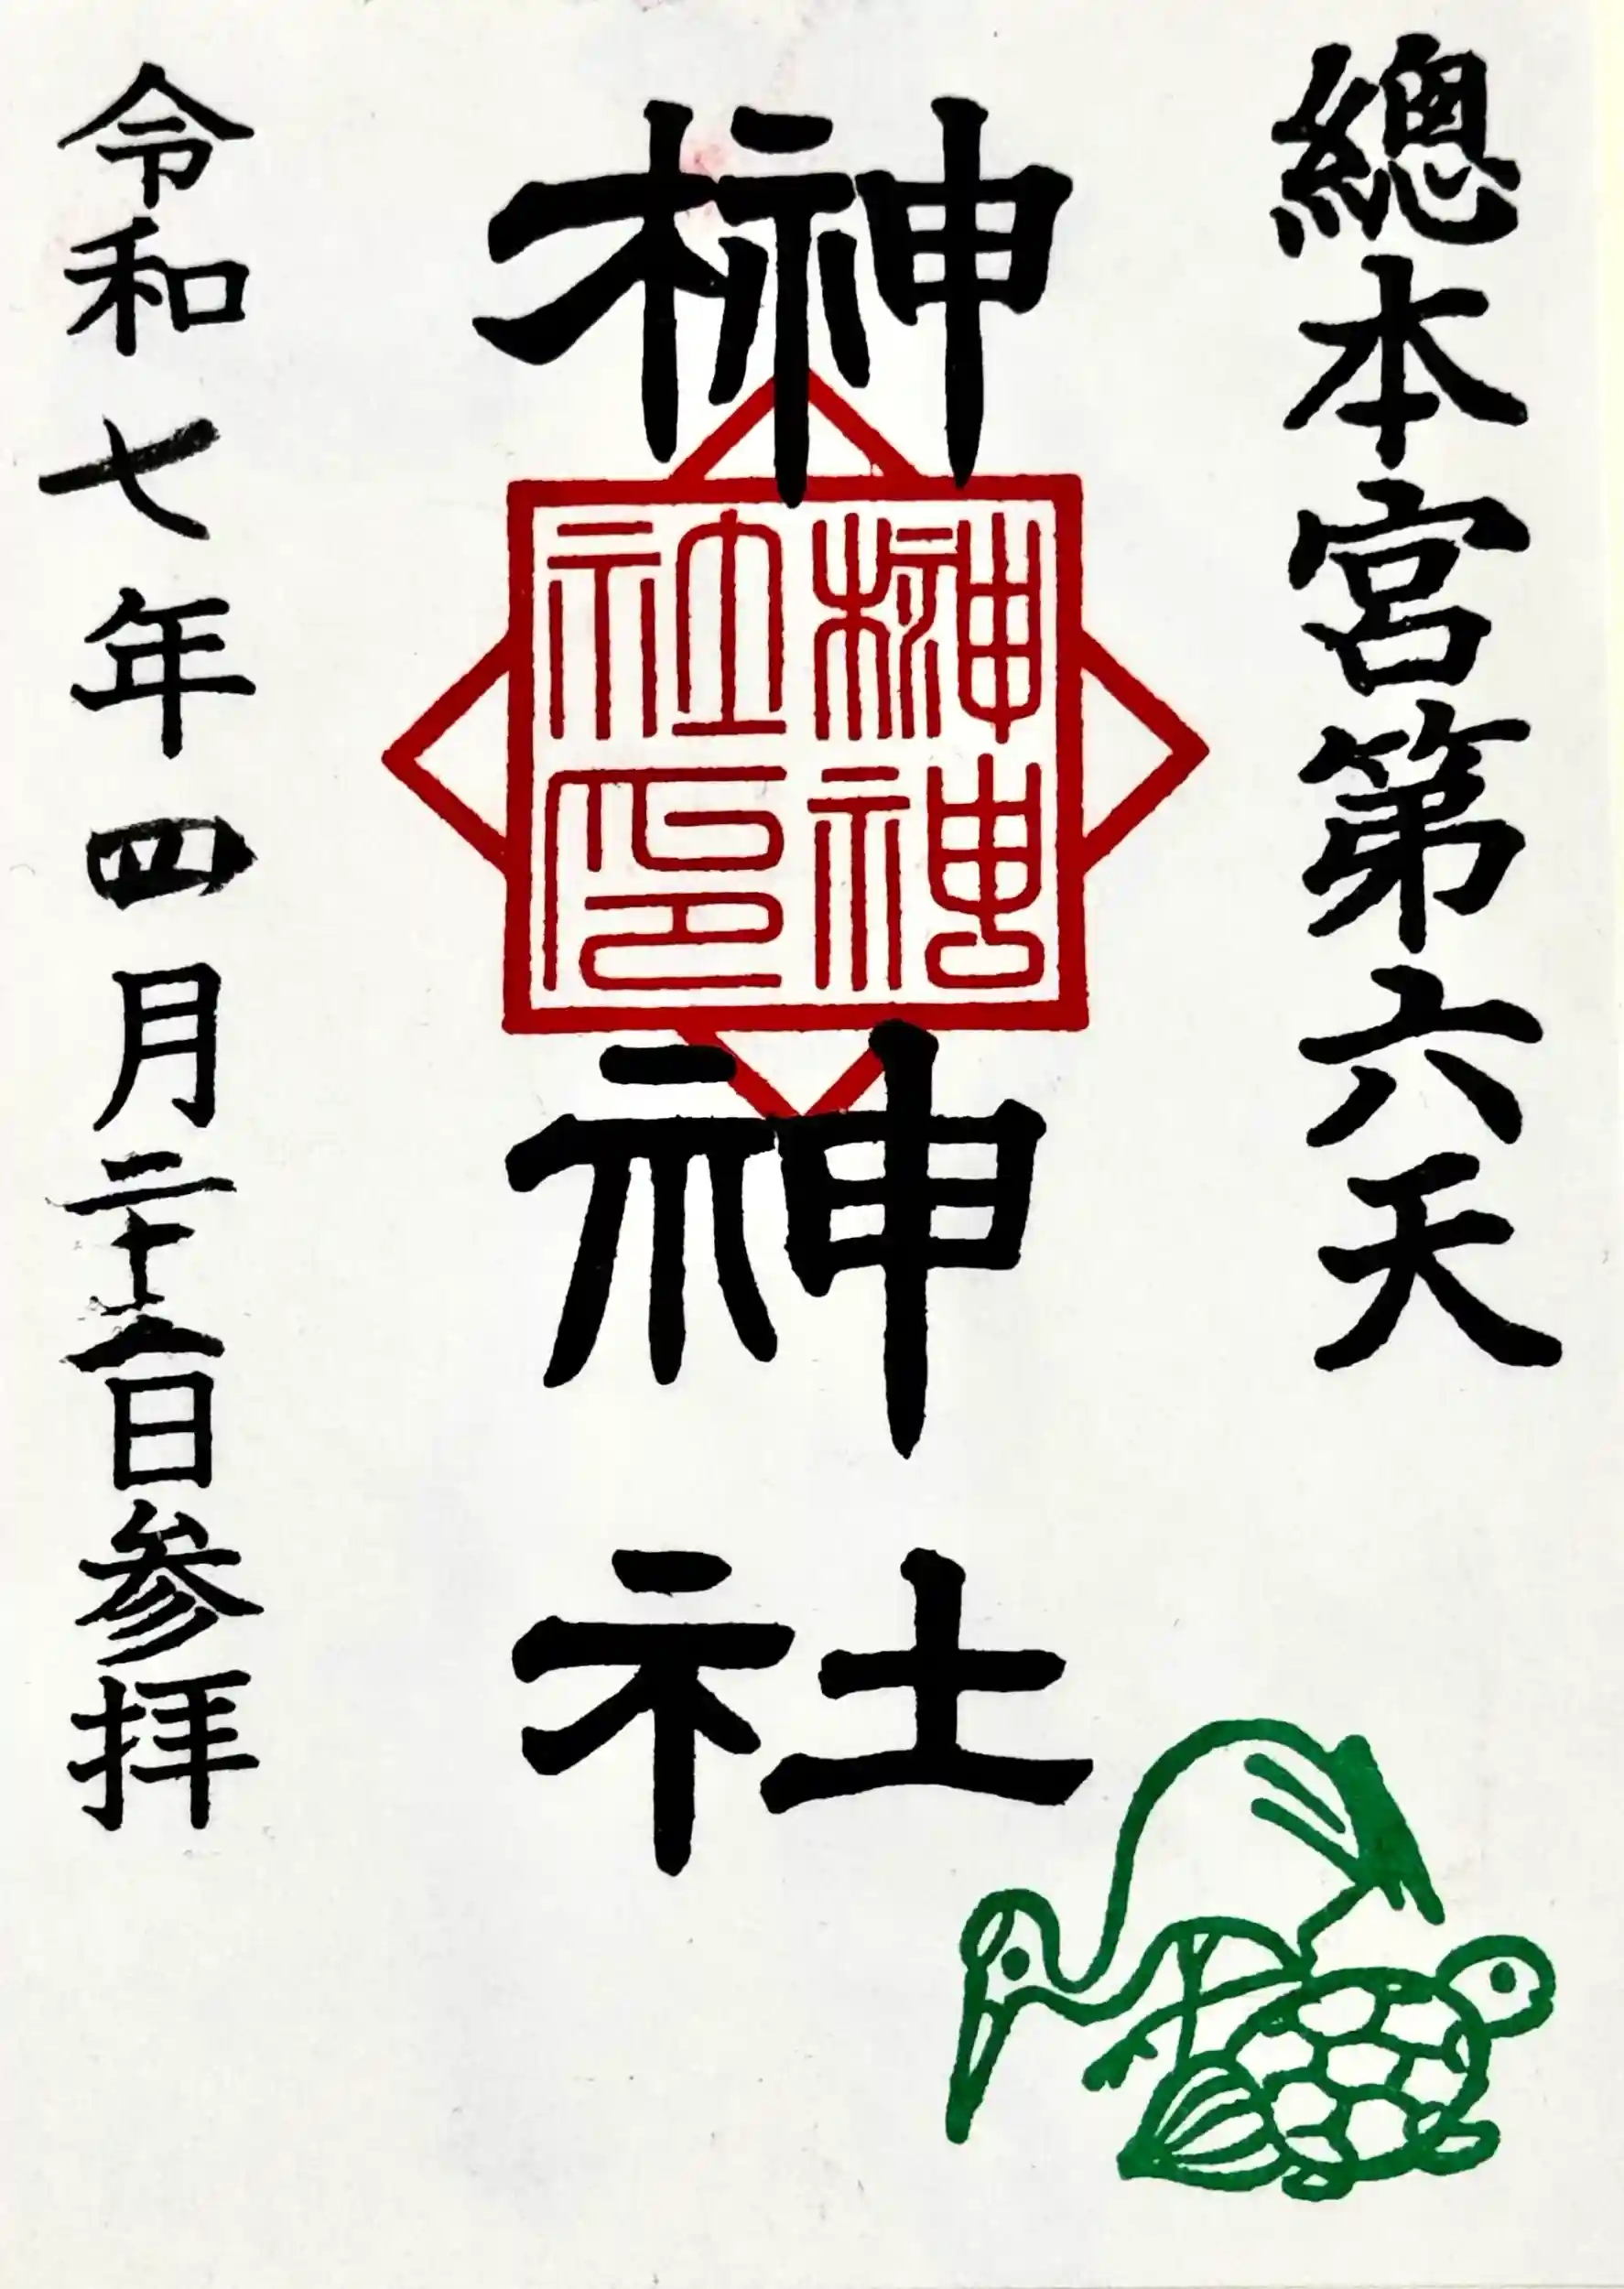 總本宮第六天
榊神社
榊神
社印
令和七年四月二十日参拝